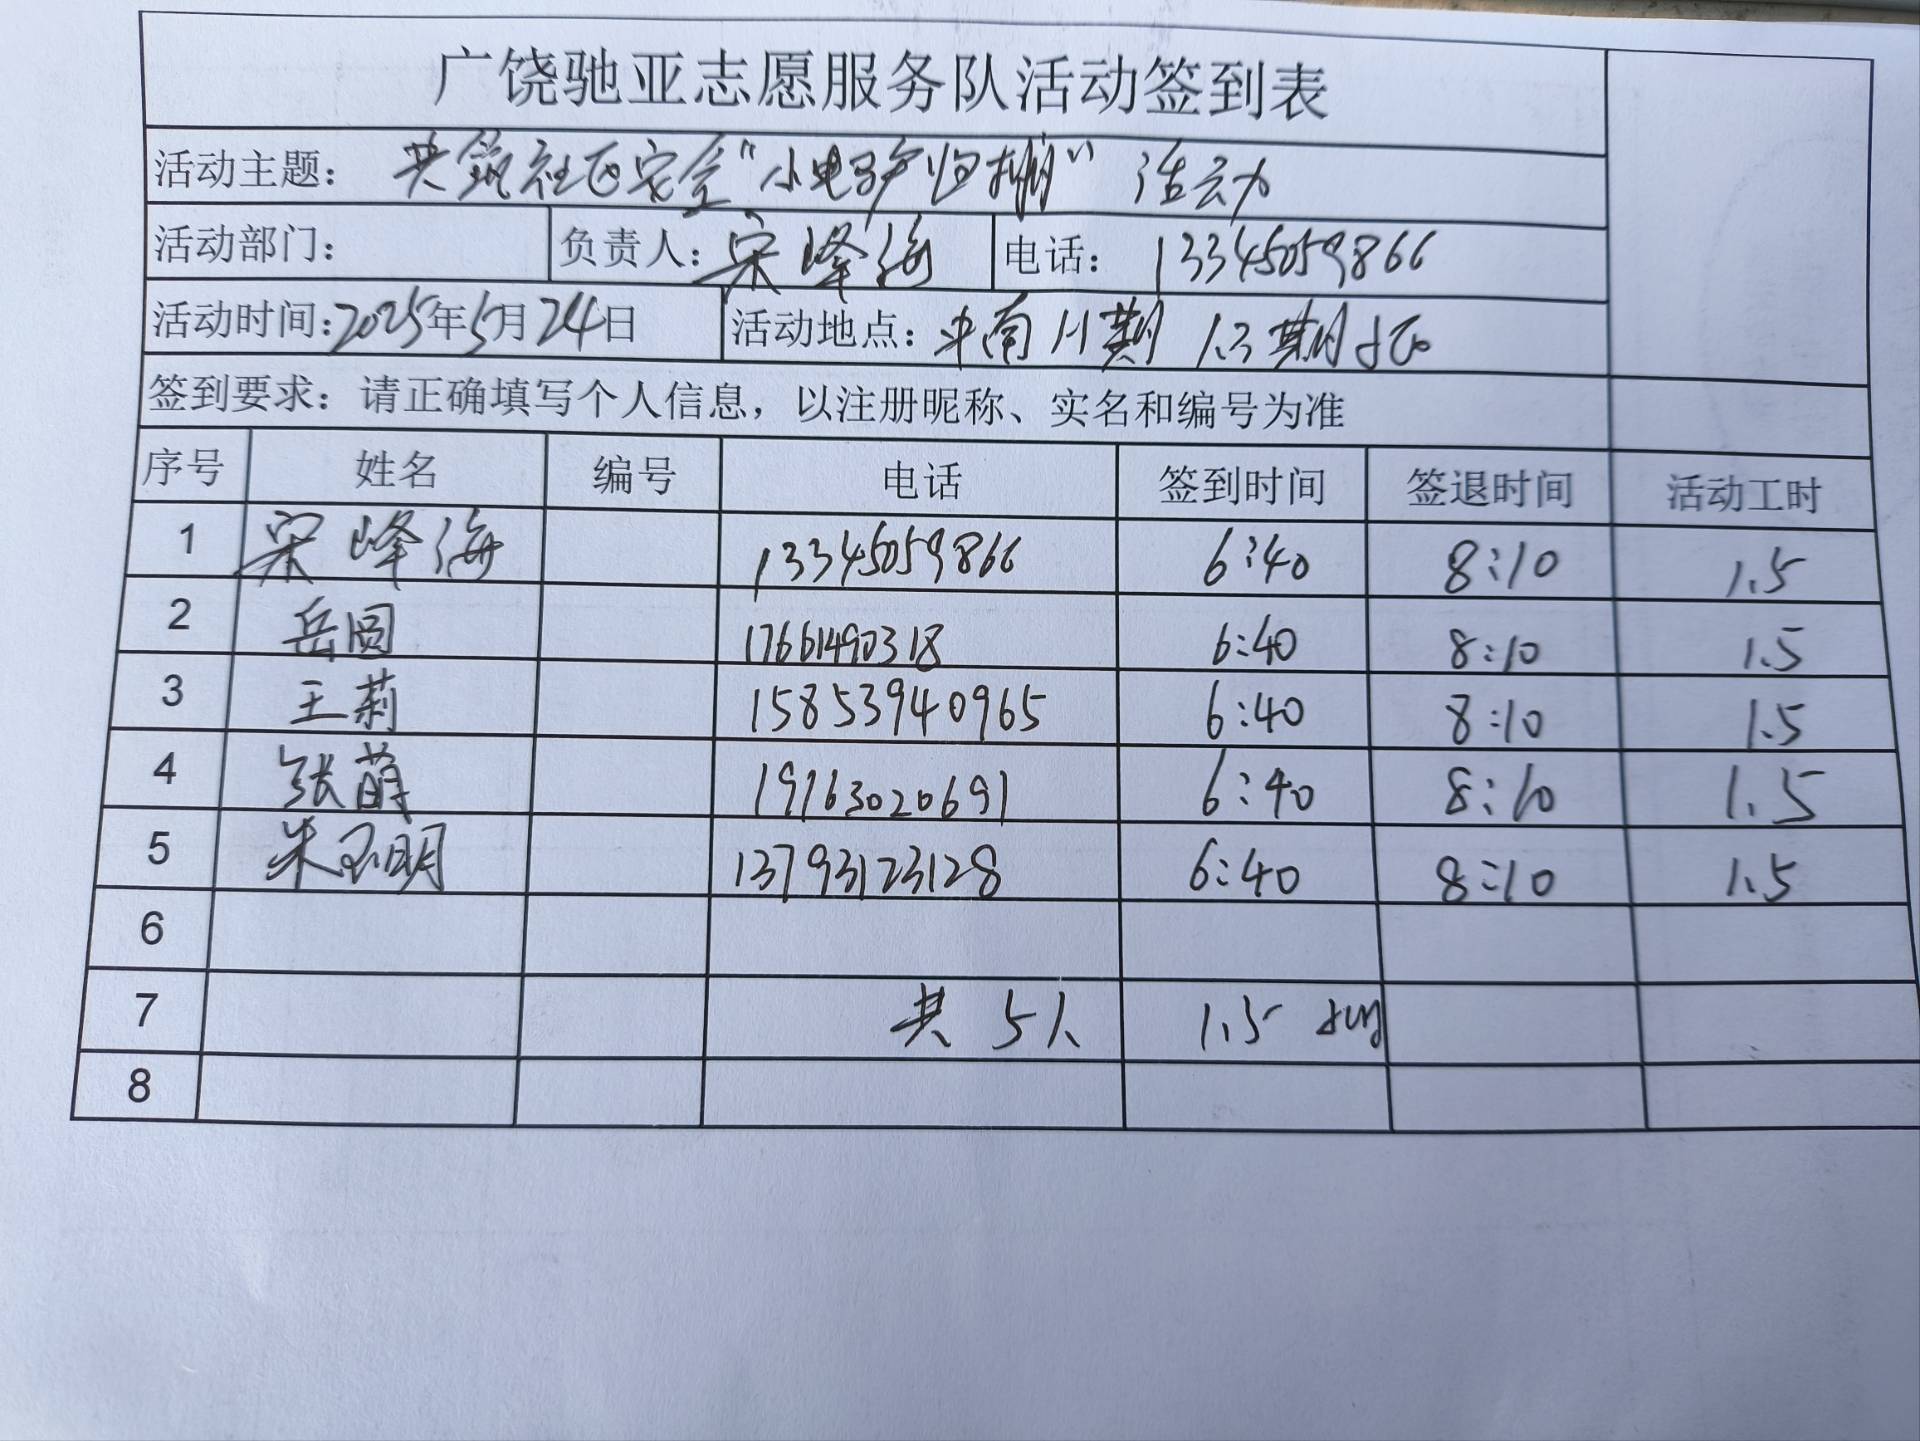 广饶驰亚志愿服务队活动签到表
活动主题: 共筑社区安全"小电驴归棚"活动
活动部门: 负责人: 宋峰海 电话: 13345059866
活动时间: 2025年5月24日 活动地点: 中南 期 1.3期
签到要求: 请正确填写个人信息，以注册昵称、实名和编号为准
序号 姓名 编号 电话 签到时间 签退时间 活动工时
1 宋峰海 13345059866 6:40 8:10 1.5
2 岳圆 17661490318 6:40 8:10 1.5
3 王莉 15853940965 6:40 8:10 1.5
4 张萌 19163020691 6:40 8:10 1.5
5 朱 明 13793123128 6:40 8:10 1.5
6
7 共 5人 1.5
8